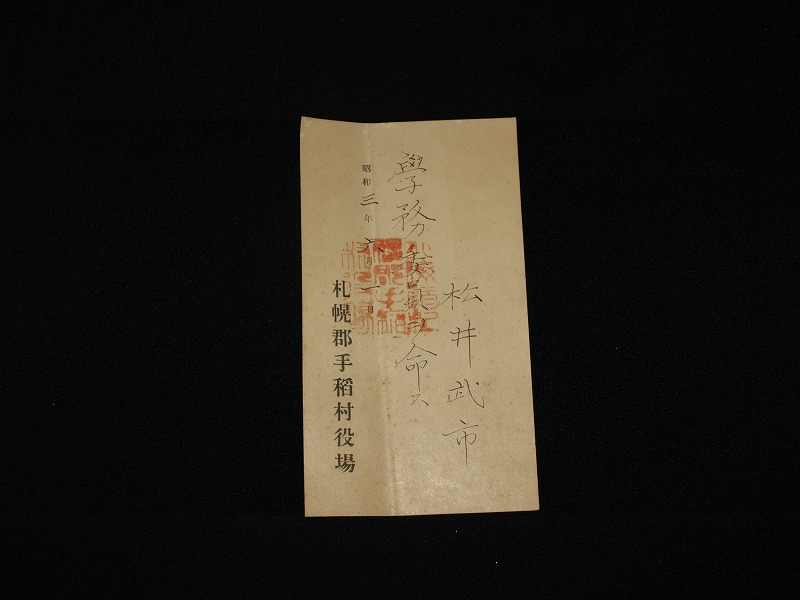 松井武市
學務委員ヲ命ス
昭和三年六月一日
札幌郡手稻村役場